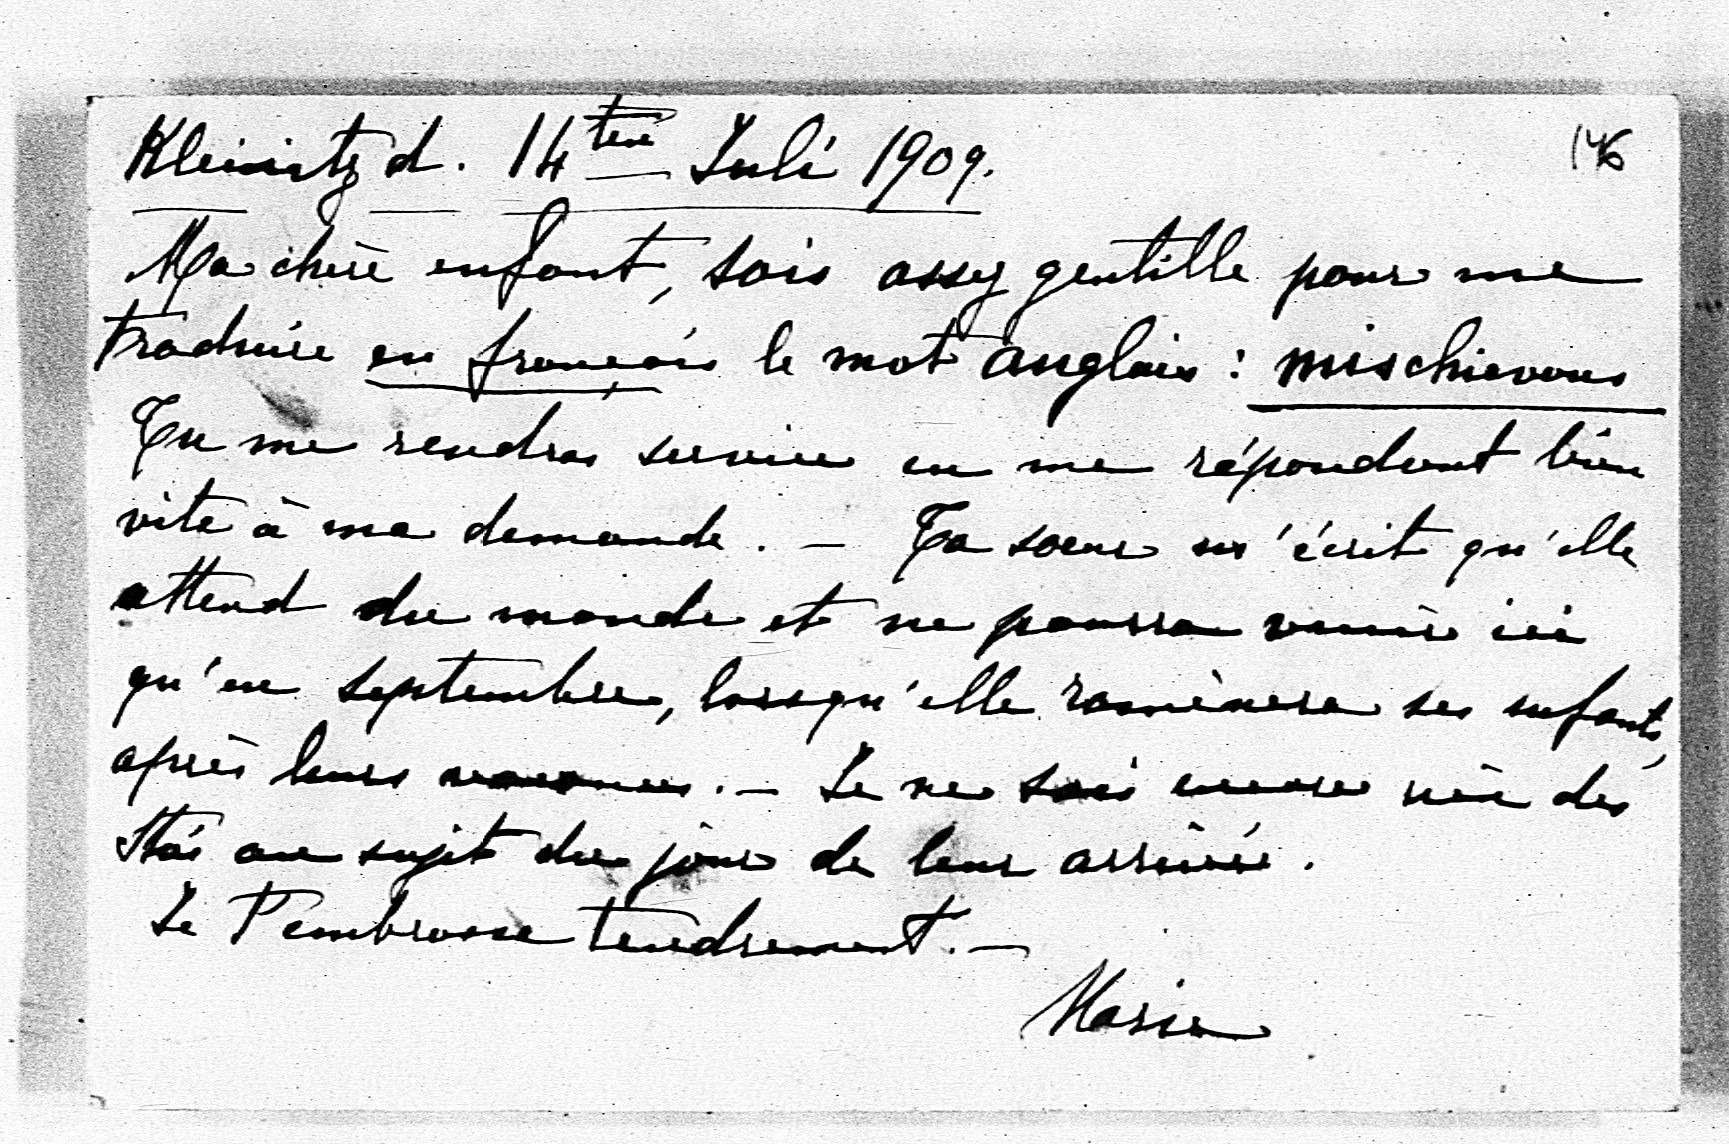 Kleinitz d. 14ten Juli 1909.
146
Ma chère enfant, sois assez gentille pour me
traduire en français le mot anglais : mischievous
Tu me rendras service en me répondant bien
vite à ma demande. — Ta soeur m'écrit qu'elle
attend du monde et ne pourra venir ici
qu'en septembre, lorsqu'elle ramènera ses enfants,
après leurs vacances. — Je ne sais encore rien des
Stás au sujet du jour de leur arrivée.
Je t'embrasse tendrement. —
Marie